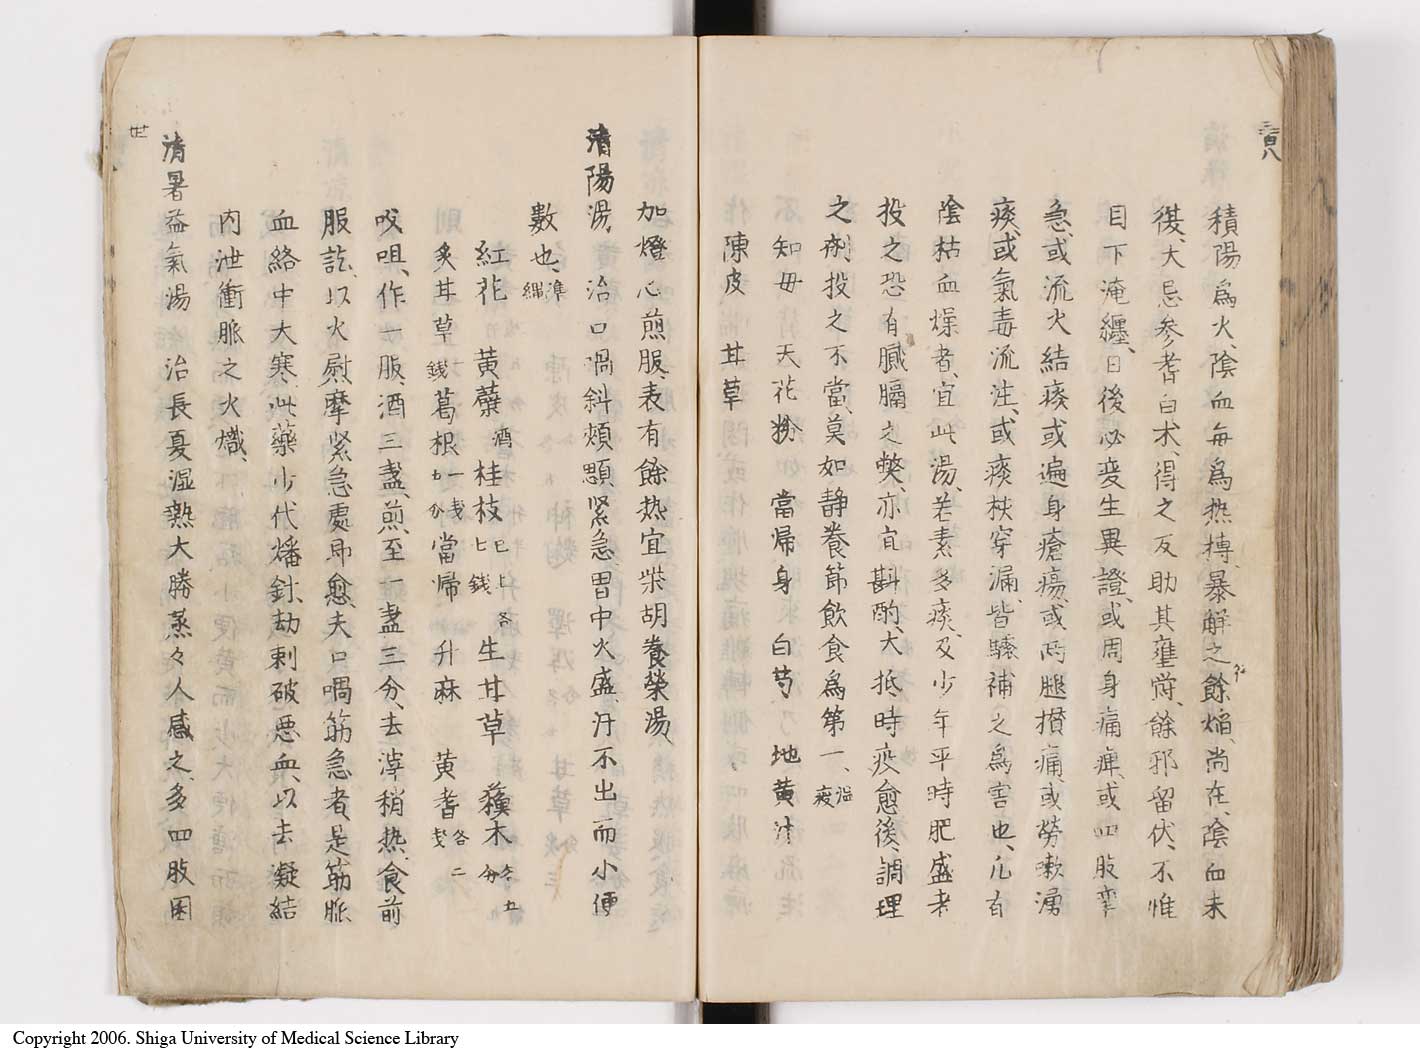 三百八
積陽爲火、陰血每爲热搏、暴解之餘焔尚在、陰血未
復、大忌参耆白术、得之反助其壅欝、餘邪留伏、不惟
目下淹纏、日後必変生異證、或周身痛痺、或四肢挛
急、或流火結痰、或遍身瘡瘍、或两腿攅痛、或勞嗽湧
痰、或氣毒流注、或痰核穿漏、皆驟補之爲害也、凡有
陰枯血燥者、宜此湯、若素多痰、及少年平時肥盛者
投之恐有膩膈之弊、亦宜斟酌、大抵、時疫愈後、調理
之剤投之不當、莫如静養節飲食爲第一、温疫
知母 天花粉 當帰身 白芍 地黄汁
陳皮 甘草
加燈心煎服、表有餘热宜柴胡養榮湯、
清陽湯、治口喎斜頬顋紧急、胃中火盛、汗不出而小便
數也、準縄
紅花 黄蘗酒 桂枝已上各二銭 生甘草 蘓木各五分
炙甘草銭 葛根一戔五分 當帰 升麻 黄耆各二戔
㕮咀、作一服、酒三盏、煎至一盏三分、去滓稍热食前
服訖、以火熨摩紧急處即愈、夫口喎筋急者、是筋脈
血絡中大寒、此藥少代燔針劫刺破悪血、以去凝結
内泄衝脈之火熾、
清暑益氣湯 治長夏湿熱大勝蒸々人感之、多四肢困
Copyright 2006. Shiga University of Medical Science Library